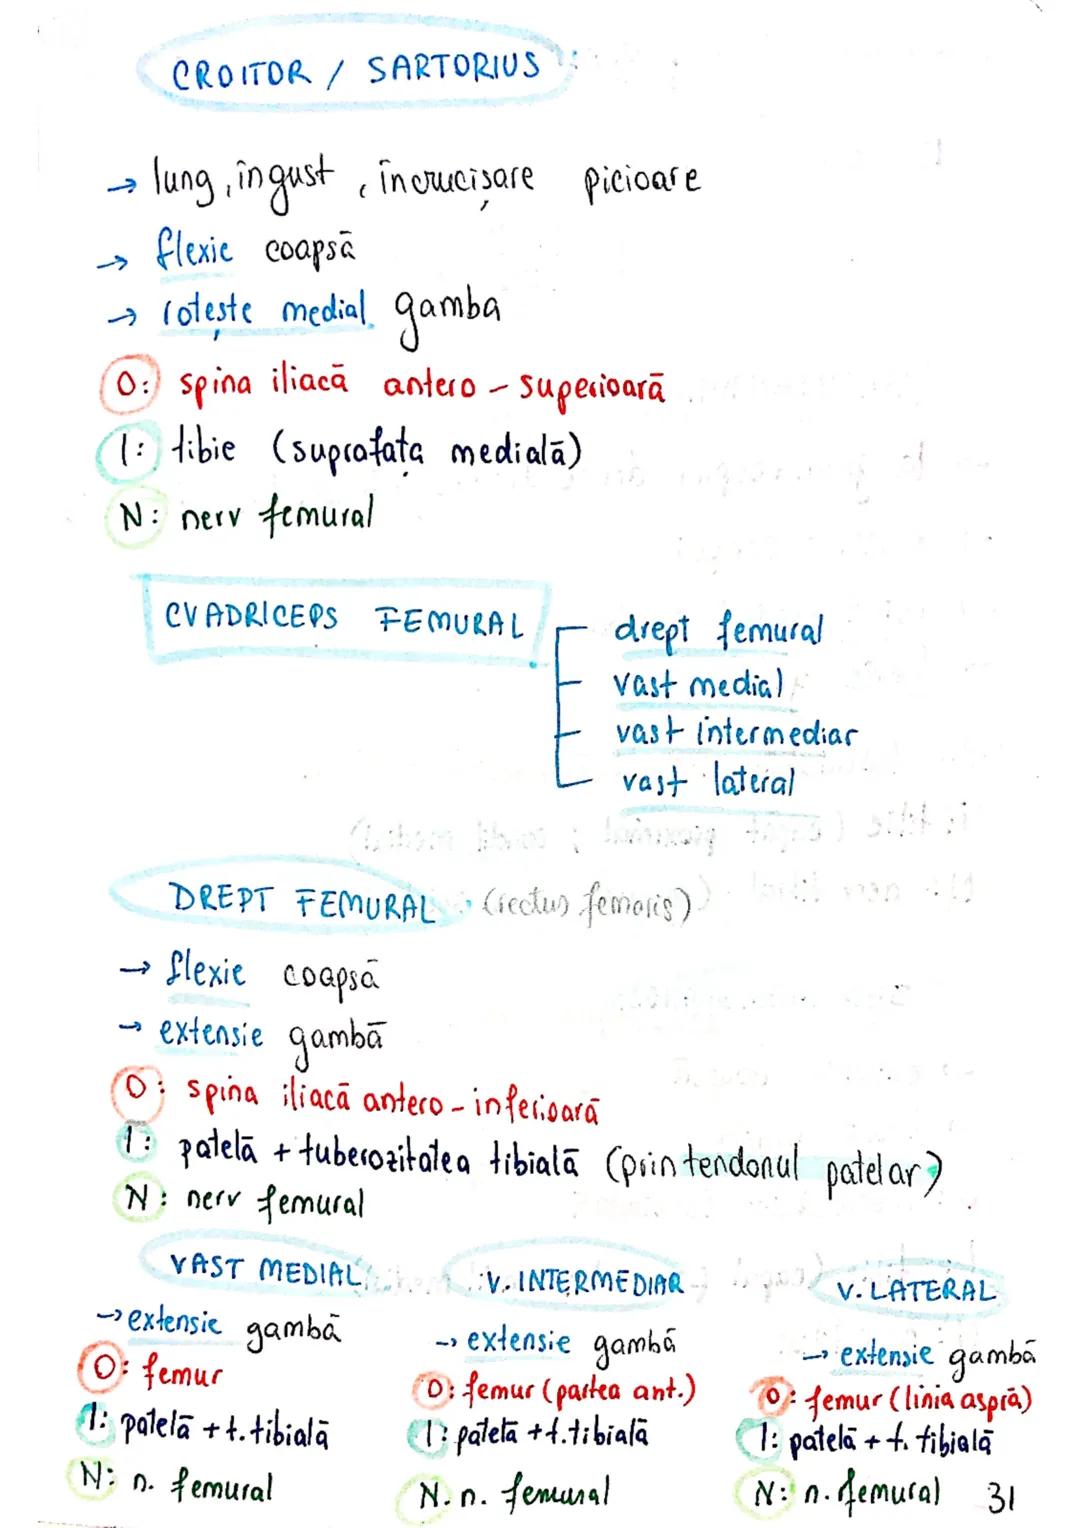 CROITOR / SARTORIUS
→ lung, îngust, încrucișare picioare
→ flexie coapsă
→ rotește medial gamba
O: spina iliacă antero-superioară
I: tibie (suprafața medială)
N: nerv femural
CVADRICEPS FEMURAL
drept femural
vast medial
vast intermediar
vast lateral
DREPT FEMURAL (rectus femoris)
→ flexie coapsă
→ extensie gambă
O: spina iliacă antero-inferioară
I: patelă + tuberozitatea tibială (prin tendonul patelar)
N: nerv femural
VAST MEDIAL
→ extensie gambă
O: femur
I: patelă + t. tibială
N: n. femural
V. INTERMEDIAR
→ extensie gambă
O: femur (partea ant.)
I: patelă + t. tibială
N. n. femural
V. LATERAL
→ extensie gambă
O: femur (linia aspră)
I: patelă + t. tibială
N: n. femural
31